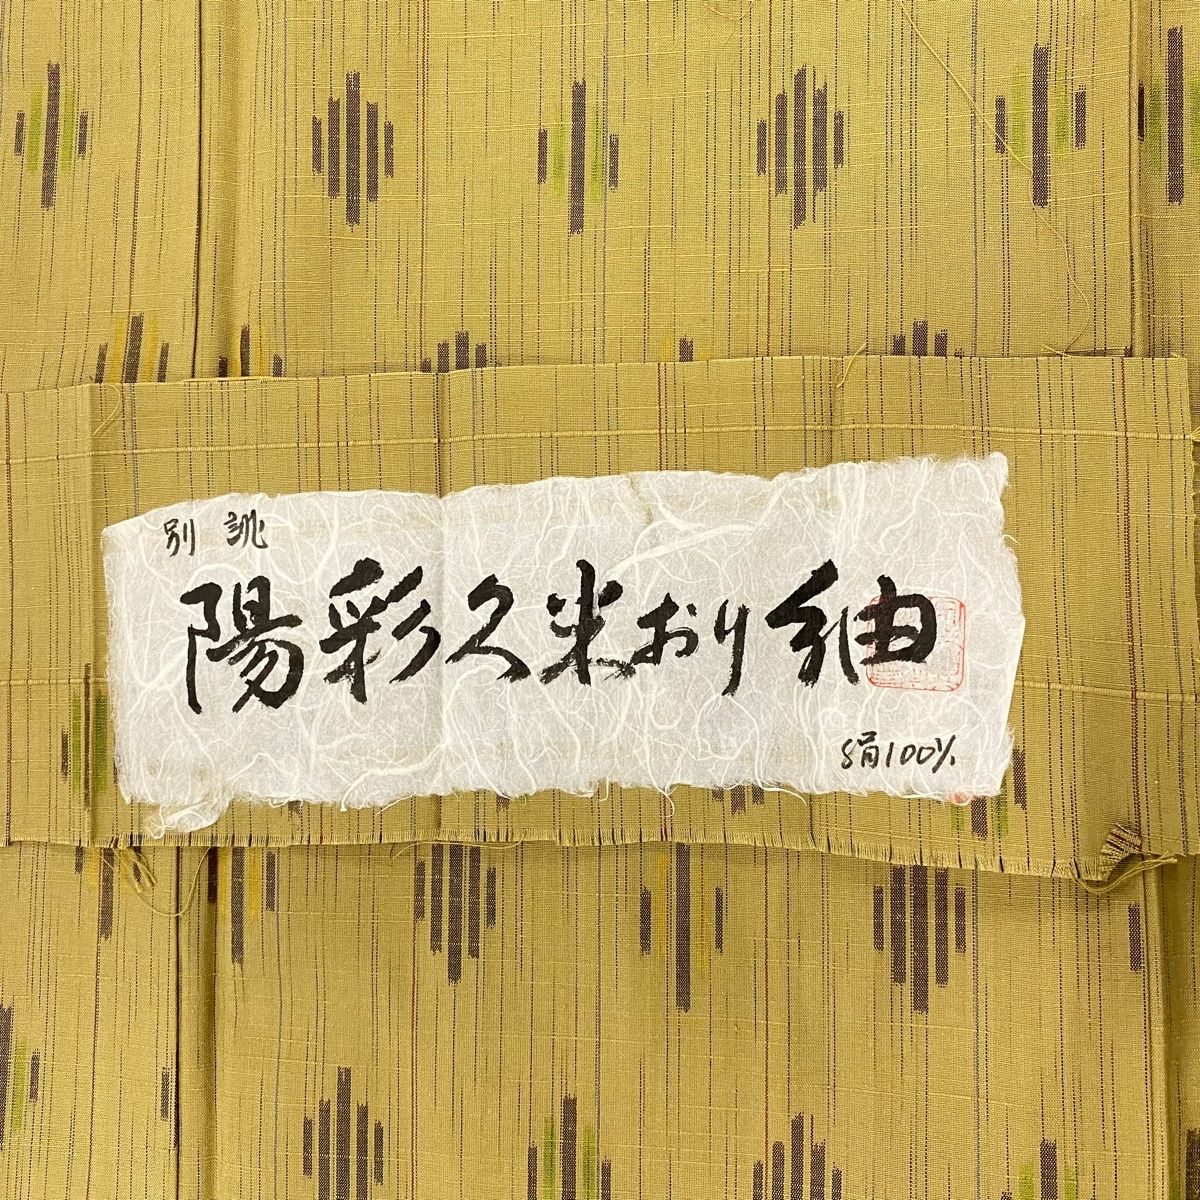 別誂
陽彩久米おり紬
絹100%